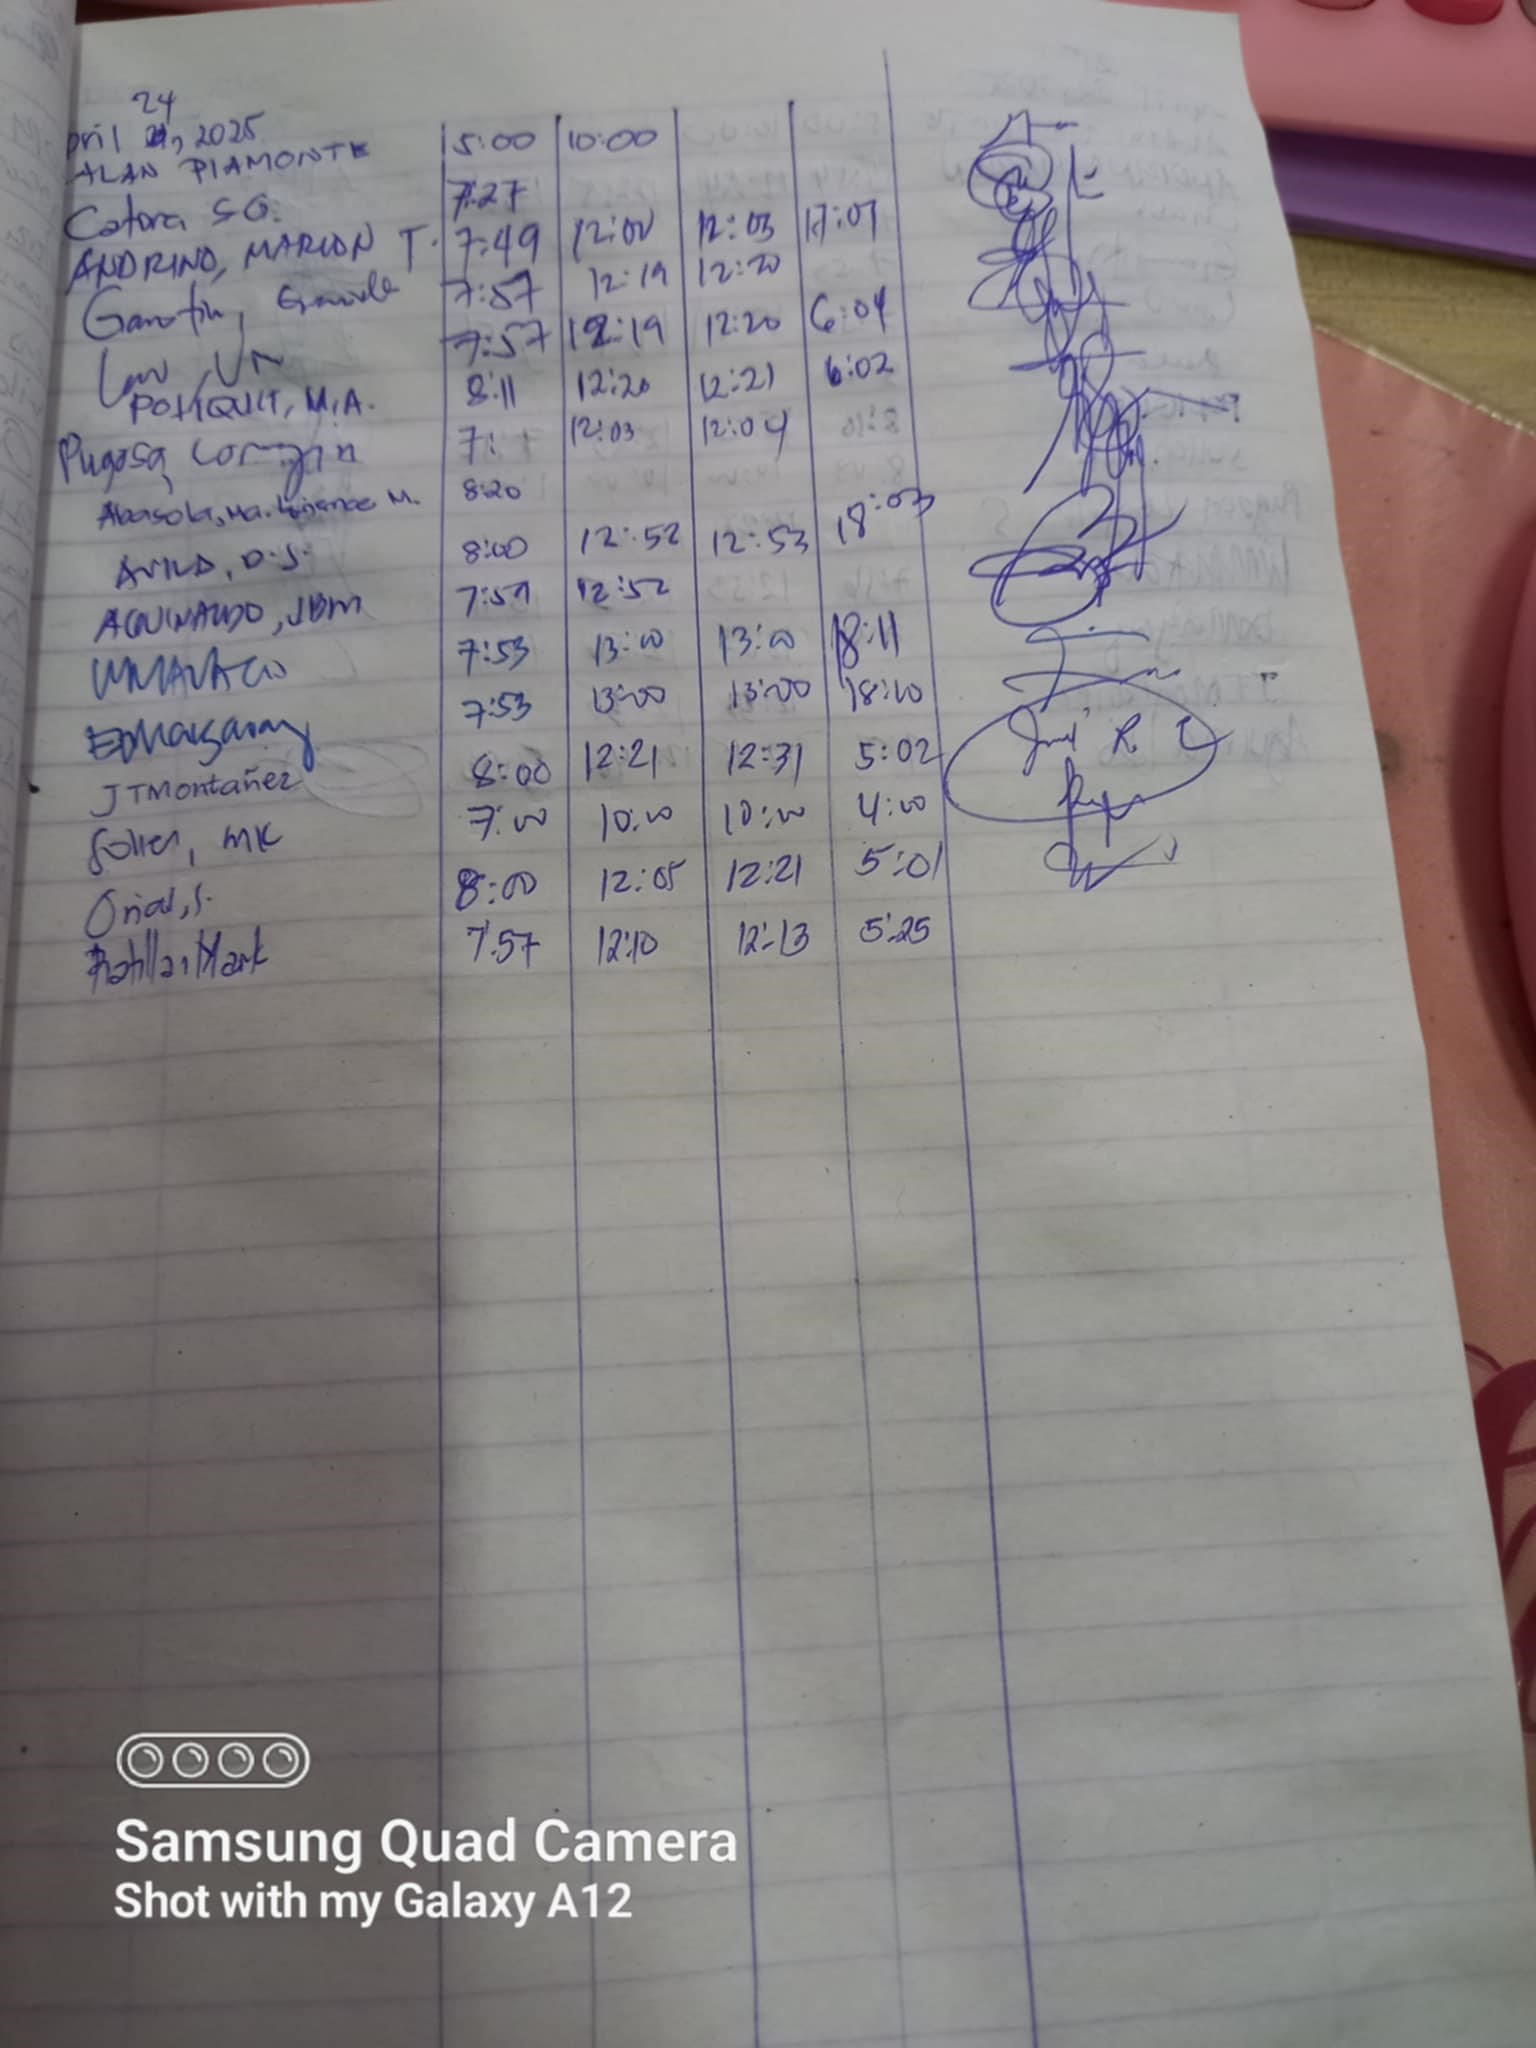 24
pril , 2025
ALAN PIAMONTE 5:00 10:00
Catora SG. 7:27
ANDRINO, MARION T. 7:49 12:00 12:03 17:07
Garotin, 7:57 12:19 12:20
Law, VN 7:57 12:19 12:20 6:04
POTIQUIT, M.A. 8:11 12:20 12:21 6:02
Pugosa, Corazon 7: 12:03 12:04
Abasola, Ma. M. 8:20
AVILA, D.S. 8:00 12:52 12:53 18:03
AGUINALDO, JBM 7:57 12:52
7:53 13:00 13:00 18:11
7:53 13:00 13:00 18:10
JTMontañez 8:00 12:21 12:31 5:02
Soller, MK 7:00 10:00 10:00 4:00
Orial, J. 8:00 12:05 12:21 5:01
Mark 7:57 12:10 12:13 5:25
Samsung Quad Camera
Shot with my Galaxy A12